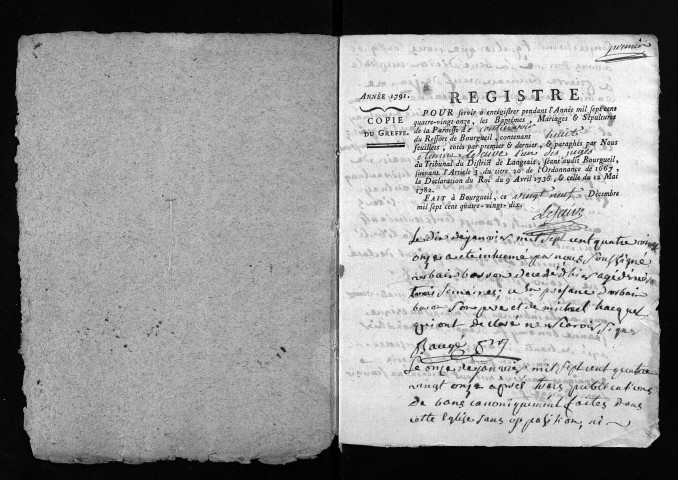 premier
ANNÉE 1791.
COPIE
DU GREFFE.
REGISTRE
POUR servir à enregistrer pendant l'Année mil sept cens
quatre-vingt-onze, les Baptêmes, Mariages & Sépultures
de la Paroisse de
du Ressort de Bourgueil, contenant huit
feuillets, cotés par premier & dernier, & paraphés par Nous
l'un des juges
du Tribunal du District de Langeais, séant audit Bourgueil,
suivant l'Article 3 du titre 20 de l'Ordonnance de 1667,
la Déclaration du Roi du 9 Avril 1736, & celle du 12 Mai
1782.
FAIT à Bourgueil, ce vingt neuf Décembre
mil sept cent quatre-vingt-dix.
Le dix de janvier mil sept cent quatre vingt
onze a été inhumé par nous soussigné
urbain basson décédé d'hier agé de
trois semaines; ce en présence d'urbain
basson son père et de michel hacquet
qui ont déclaré ne scavoir signer
Baugé
Le onze de janvier mil sept cent quatre
vingt onze après trois publications
de bans canoniquement faites dans
cette Eglise sans opposition, ni